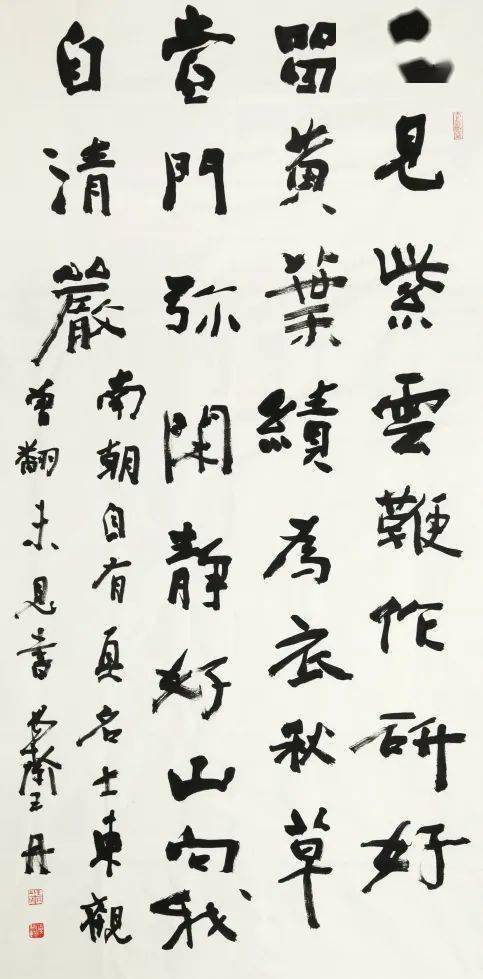 見紫雲鞭作研好
留黃葉績為衣秋草
當門弥閑靜好山向我
自清嚴
南朝自有真名士東觀
曾翻未見書 王丹